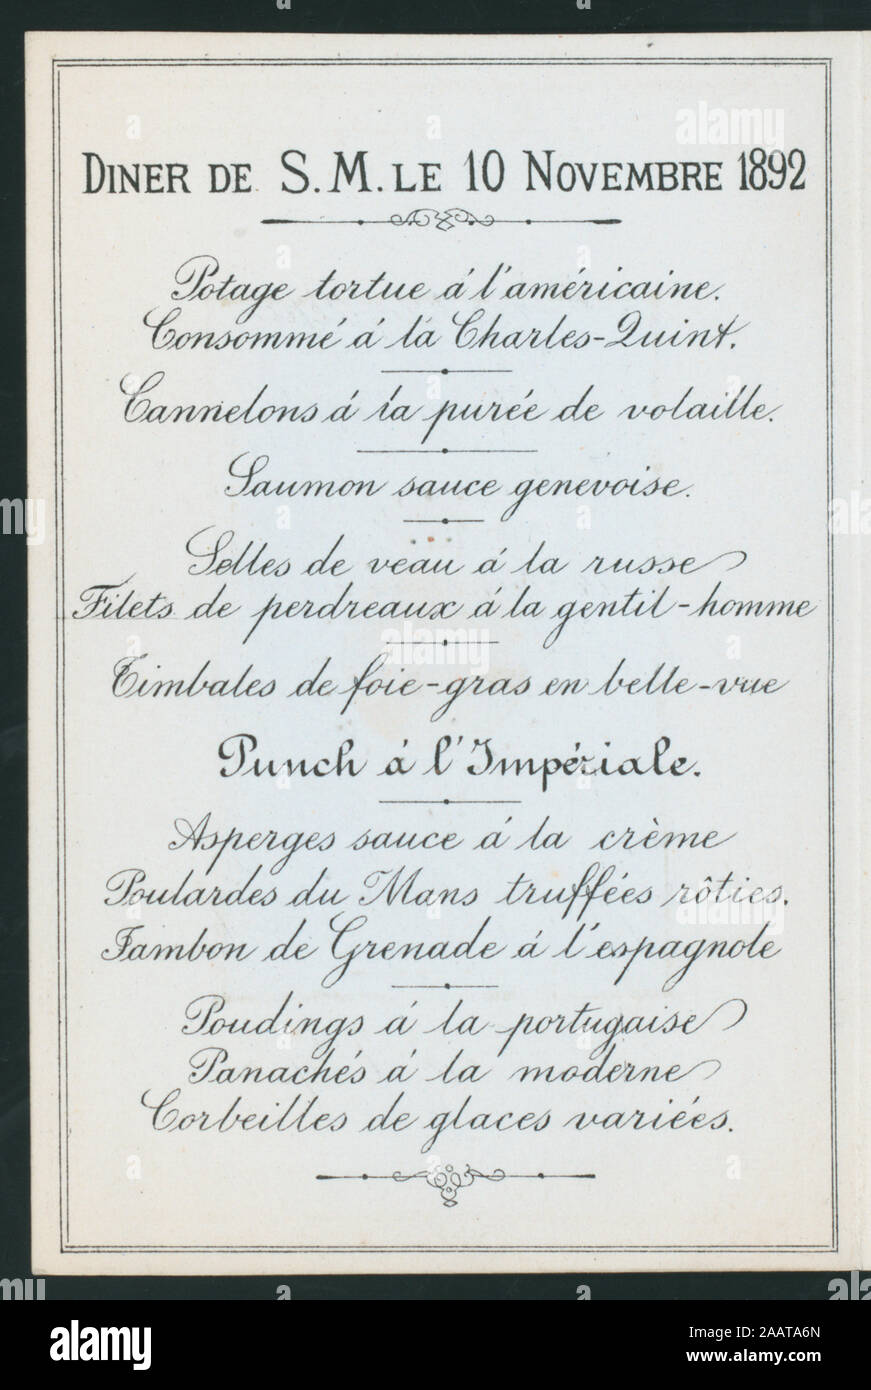 alamy
DINER DE S. M. LE 10 NOVEMBRE 1892
Potage tortue á l'américaine.
Consommé á lá Charles-Quint.
Cannelons á la purée de volaille.
Saumon sauce genevoise.
Selles de veau á la russe
Filets de perdreaux á la gentil-homme
Timbales de foie-gras en belle-vue
Punch á l'Impériale.
Asperges sauce á la crème
Poulardes du Mans truffées rôties.
Jambon de Grenade á l'espagnole
Poudings á la portugaise
Panachés á la moderne
Corbeilles de glaces variées.
alamy
Image ID: 2AATA6N
www.alamy.com